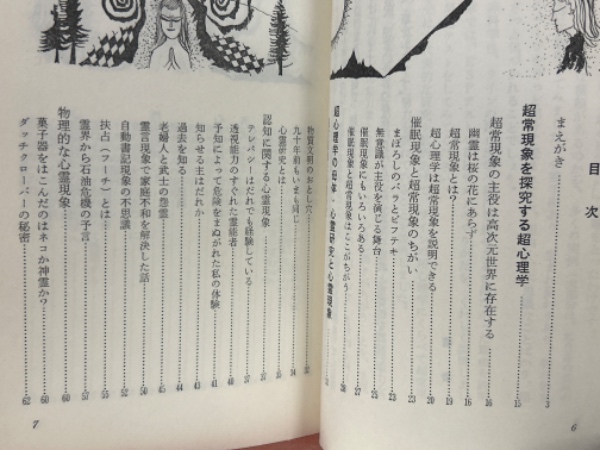 目次
まえがき 3
超常現象を探究する超心理学 15
超常現象の主役は高次元世界に存在する 16
幽霊は桜の花にあらず 16
超常現象とは? 19
超心理学は超常現象を説明できる 20
催眠現象と超常現象のちがい 23
まぼろしのバラとビフテキ 23
無意識が主役を演じる舞台 25
催眠現象にもいろいろある 27
催眠現象と超常現象はここがちがう 28
超心理学の母体・心霊研究と心霊現象
6
物質文明のおとし穴
九十年前もいまも同じ 34
心霊研究とは 35
認知に関する心霊現象 37
テレパシーはだれでも経験している 37
透視能力のすぐれた霊能者 40
予知によって危険をまぬがれた私の体験 41
知らせる主はだれか 43
過去を知る 44
老婦人と武士の怨霊 45
霊言現象で家庭不和を解決した話 50
自動書記現象の不思議 52
扶占(フーチ)とは 55
霊界から石油危機の予言 57
物理的な心霊現象 60
菓子器をはこんだのはネコか神霊か? 60
ダッチクローバーの秘密 62
7